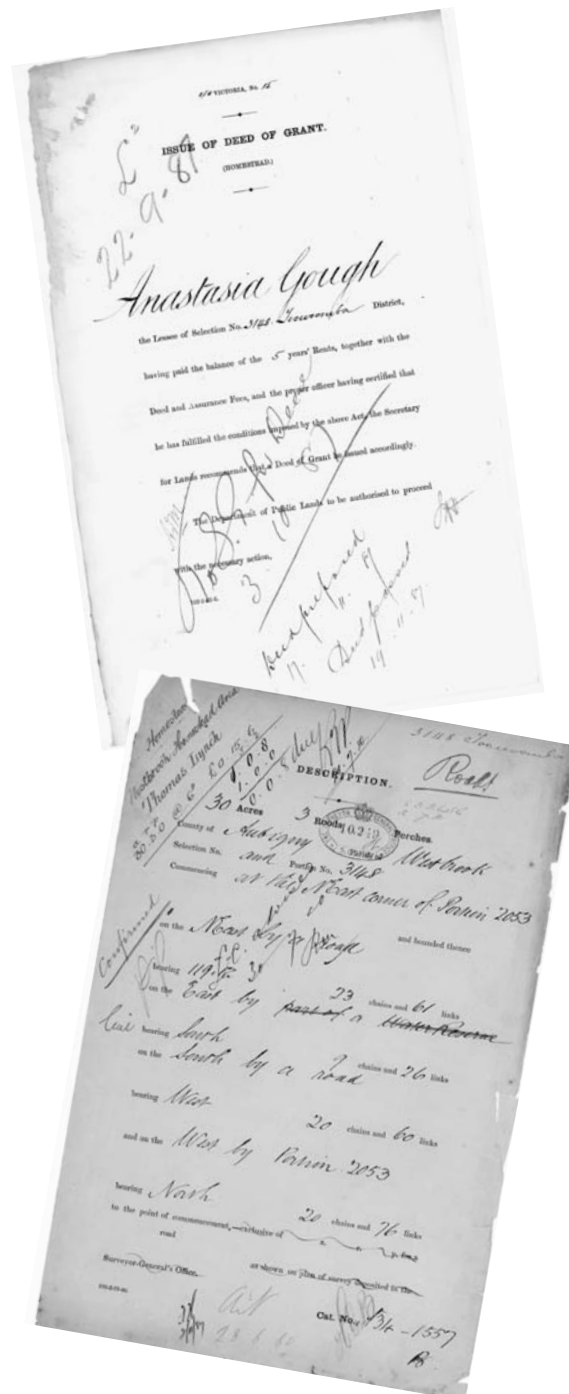 VICTORIA, No. 15
ISSUE OF DEED OF GRANT.
(HOMESTEAD.)
22.9.87
Anastasia Gough
the Lessee of Selection No. 3148 Toowoomba District,
having paid the balance of the 5 years' Rents, together with the
Deed and Assurance Fees, and the proper officer having certified that
he has fulfilled the conditions imposed by the above Act, the Secretary
for Lands recommends that a Deed of Grant be issued accordingly.
The Department of Public Lands to be authorised to proceed
with the necessary action,
3 10 87
Deed prepared
17. 11. 87
19.11.87.
3148 Toowoomba
Homestead
Westbrook Homestead Area
Thomas Lynch
Roads
DESCRIPTION.
30 Acres 3 Roods Perches.
County of Aubigny Parish of Westbrook
Selection No. and Portion No. 3148
Commencing at the NEast corner of Portion 2053
and bounded thence
Confirmed
on the NEast by a Road
bearing 119. 23 chains and 61 links
on the East by part of a Water Reserve
line bearing South 9 chains and 26 links
on the South by a road
bearing West 20 chains and 60 links
and on the West by Portion 2053
bearing North 20 chains and 76 links
to the point of commencement,—exclusive of
road as shown on plan of survey deposited in the
Surveyor-General's Office.
Cat. No. A34-1557